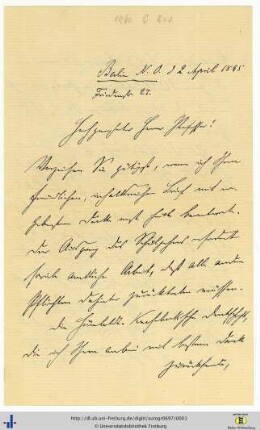 Berlin N. O. d 2 April 1885
Friedenstr. 27.
Hochgeehrter Herr Professor!
Verzeihen Sie gütigst, wenn ich Ihren
freundlichen, inhaltreichen Brief mit
Dank erst heute beantworte.
Der Ausgang des Schuljahres erfordert
soviele amtliche Arbeit, daß alle anderen
Pflichten dahinter zurücktreten müssen.
Die
die ich Ihnen anbei mit bestem Dank
zurücksende,
http://dl.ub.uni-freiburg.de/diglit/autogr0697/0001
© Universitätsbibliothek Freiburg